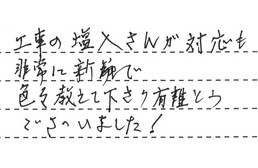 工事の塩入さんが対応も
非常に新切で
色々教えて下さり有難とう
ございました！